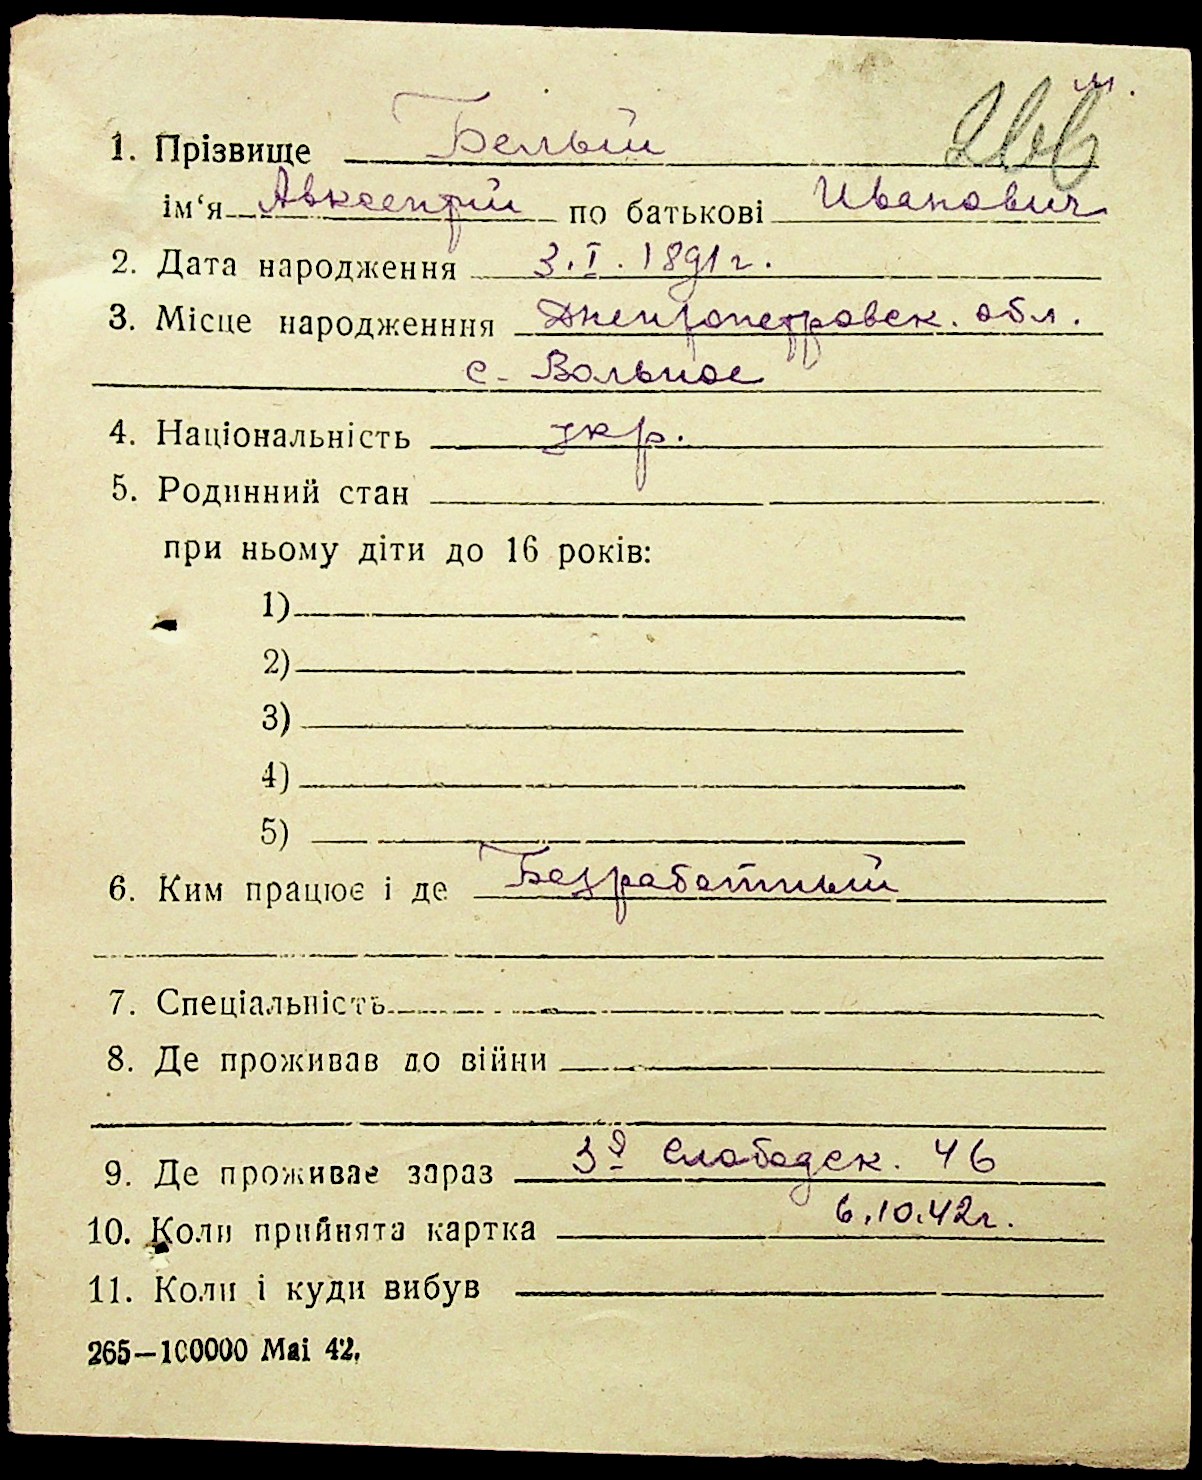 м.
1. Прізвище Белый
ім‘я Авксентий по батькові Иванович
2. Дата народження 3.I.1891г.
3. Місце народженння Днепропетровск. обл.
с. Вольное
4. Національність укр.
5. Родинний стан
при ньому діти до 16 років:
1)
2)
3)
4)
5)
6. Ким працює і де Безработный
7. Спеціальність
8. Де проживав до війни
9. Де проживає зараз 3я Слободск. 46
10. Коли прийнята картка 6.10.42г.
11. Коли і куди вибув
265—100000 Mai 42.